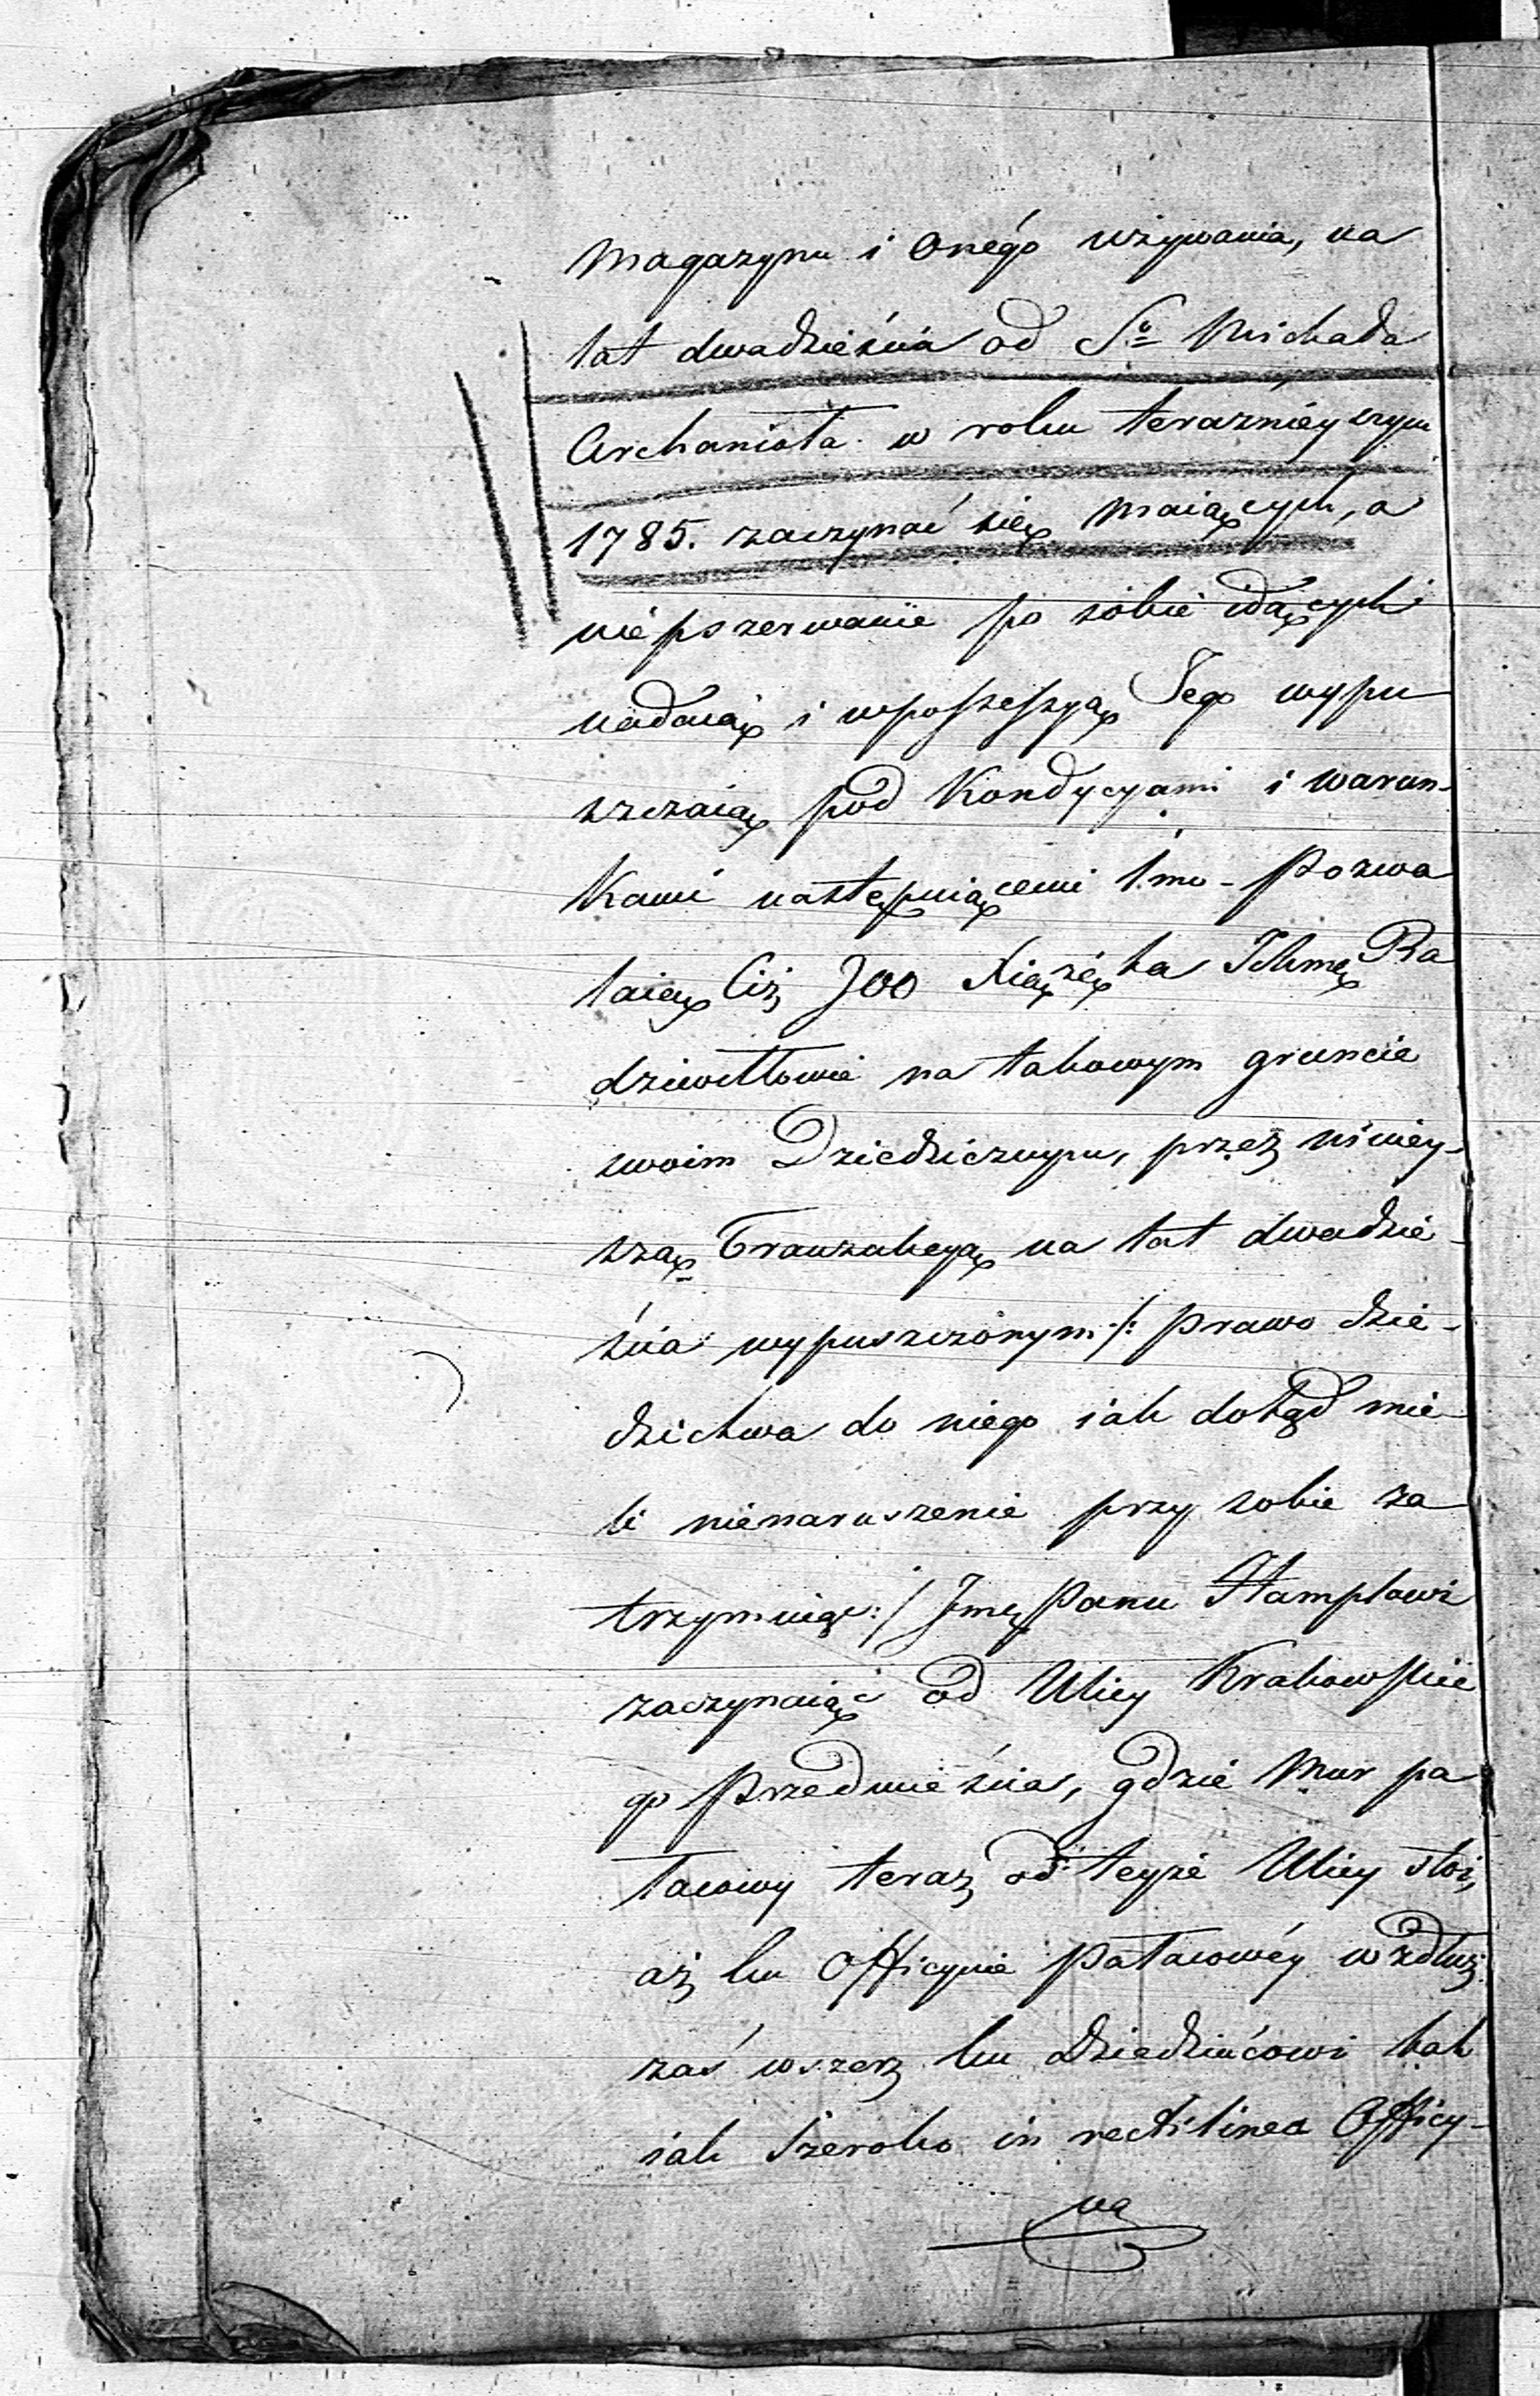 Magazynu i Onégo używania, na
lat dwadzieścia od Sº Michała
Archanioła w roku teraznieyszym
1785. zaczynać się maiących, a
niépszerwanie po sobie idących
nadaią i wpossessyą Jego wypu
szczaią pod Kondycyami i warun-
kami następuiącemi 1mo - Pozwa
laią Ciż JOO Xiążęta Ichmę Ra
dziwiłłowie na takowym gruncie
swoim Dziedzicznym, przez niniey-
szą Tranzakcyą na lat dwadzie-
ścia wypuszczonym /: prawo dzie-
dzictwa do niego iak dotąd mie-
li nienaruszenie przy sobie za
trzymuiąc :/ Jmę Panu Hamplowi
zaczynaiąc od Ulicy Krakowskie
go Przedmieścia, gdzie Mur pa
łacowy teraz od teyże Ulicy stoi,
aż ku Officynie Pałacowéy wzdłuż
zaś wszerz ku Dziedzińcowi tak
iak szeroko in recti linea Officy-
na